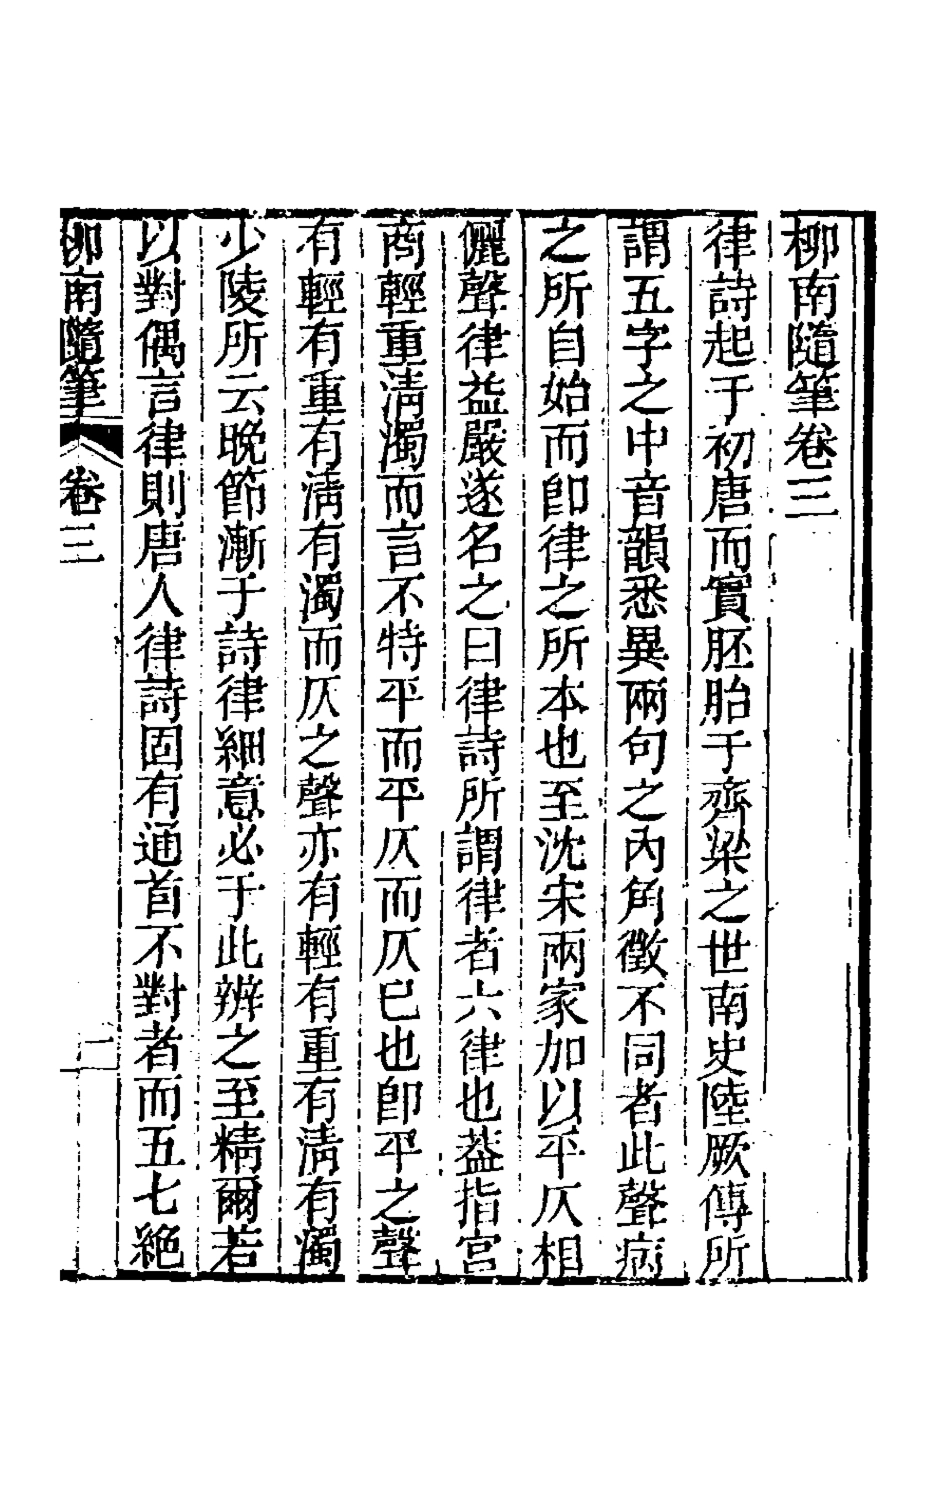 柳南隨筆卷三
律詩起于初唐而實胚胎于齊梁之世南史陸厥傳所
謂五字之中音韻悉異兩句之內角徵不同者此聲病
之所自始而卽律之所本也至沈宋兩家加以平仄相
儷聲律益嚴遂名之曰律詩所謂律者六律也葢指宮
商輕重淸濁而言不特平而平仄而仄已也卽平之聲
有輕有重有淸有濁而仄之聲亦有輕有重有淸有濁
少陵所云晚節漸于詩律細意必于此辨之至精爾若
以對偶言律則唐人律詩固有通首不對者而五七絕
柳南隨筆 卷三 一